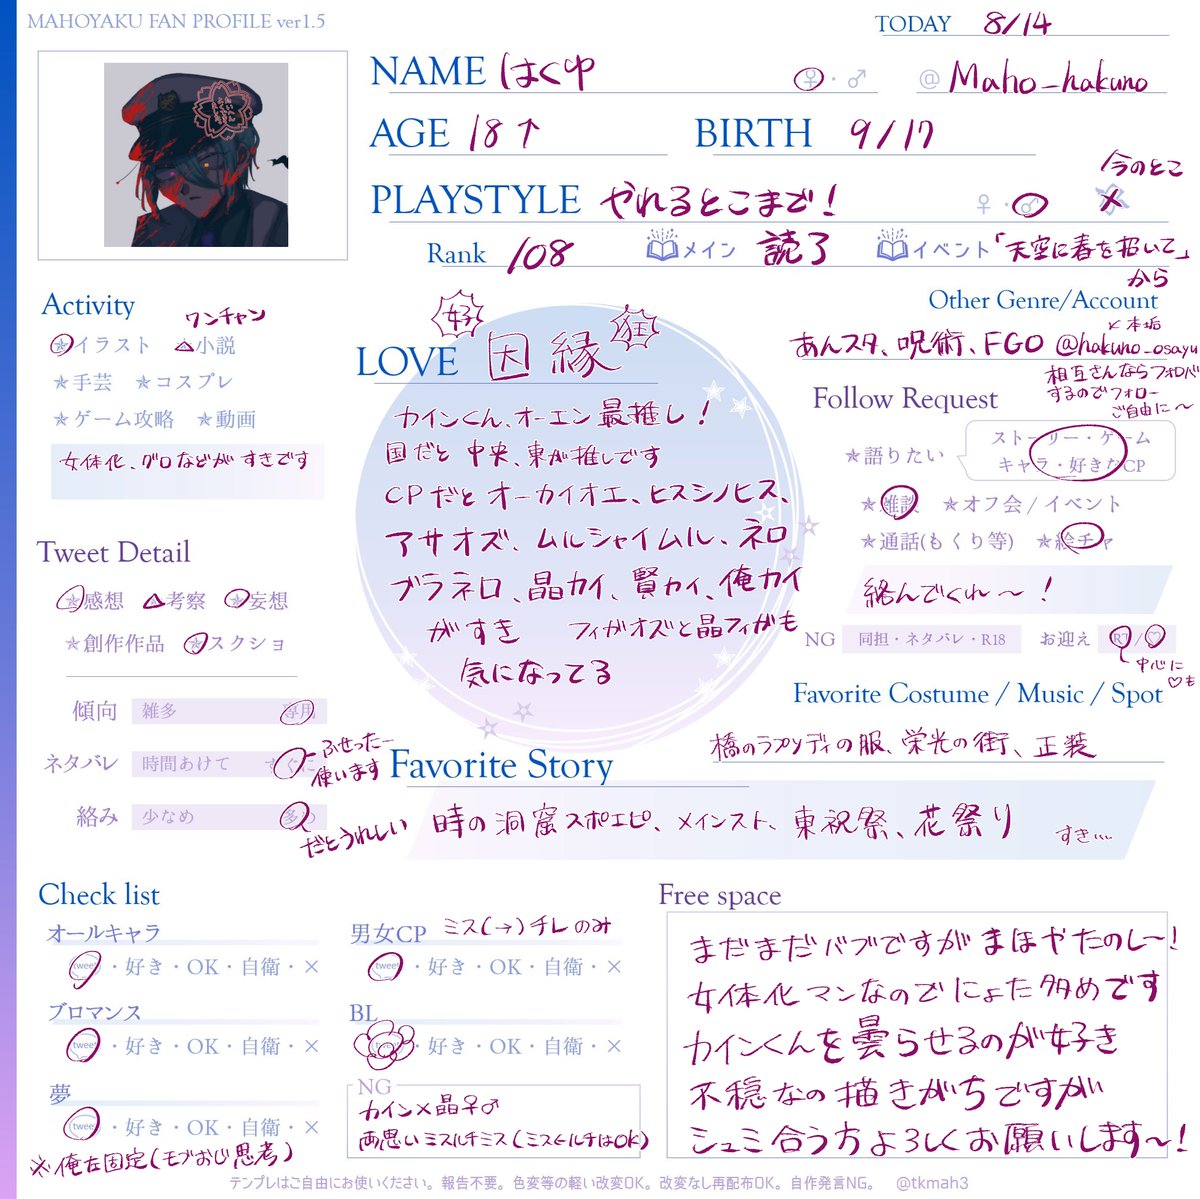 MAHOYAKU FAN PROFILE ver1.5
TODAY 8/14
NAME はくゆ ♀・♂ @ Maho_hakuno
AGE 18↑ BIRTH 9/17
今のとこ
PLAYSTYLE やれるとこまで! ♀・♂ ×
Rank 108 メイン 読了 イベント「天空に春を招いて」
から
Activity
ワンチャン
★イラスト ★小説
★手芸 ★コスプレ
★ゲーム攻略 ★動画
女体化、グロなどがすきです
Tweet Detail
★感想 ★考察 ★妄想
★創作作品 ★スクショ
傾向 雑多 専用
ネタバレ 時間あけて すぐに
ふせったー
使います
絡み 少なめ 多め
だとうれしい
好
狂
LOVE 因縁
カインくん、オーエン最推し!
国だと 中央、東が推しです
CPだと オーカイオエ、ヒスシノヒス、
アサオズ、ムルシャイムル、ネロ
ブラネロ、晶カイ、賢カイ、俺カイ
がすき フィガオズと晶フィガも
気になってる
Other Genre/Account
↙本垢
あんスタ、呪術、FGO @hakuno_osayu
相互さんならフォロバ
するのでフォロー
ご自由に〜
Follow Request
★語りたい ストーリー・ゲーム
キャラ・好きなCP
★雑談 ★オフ会 / イベント
★通話(もくり等) ★絵チャ
絡んでくれ〜!
NG 同担・ネタバレ・R18 お迎え RT/♡
中心に
♡も
Favorite Costume / Music / Spot
橋のラプソディの服、栄光の街、正装
Favorite Story
時の洞窟スポエピ、メインスト、東祝祭、花祭り すき…
Check list
オールキャラ
tweet・好き・OK・自衛・×
男女CP ミス(→)チレのみ
tweet・好き・OK・自衛・×
ブロマンス
tweet・好き・OK・自衛・×
BL
tweet・好き・OK・自衛・×
夢
tweet・好き・OK・自衛・×
※俺左固定(モブおじ思考)
NG
カイン×晶♀♂
両思いミスルチミス(ミス←ルチはOK)
Free space
まだまだバブですがまほやたのし〜!
女体化マンなのでにょた多めです
カインくんを曇らせるのが好き
不穏なの描きがちですが
シュミ合う方よろしくお願いします〜!
テンプレはご自由にお使いください。報告不要。色変等の軽い改変OK。改変なし再配布OK。自作発言NG。 @tkmah3